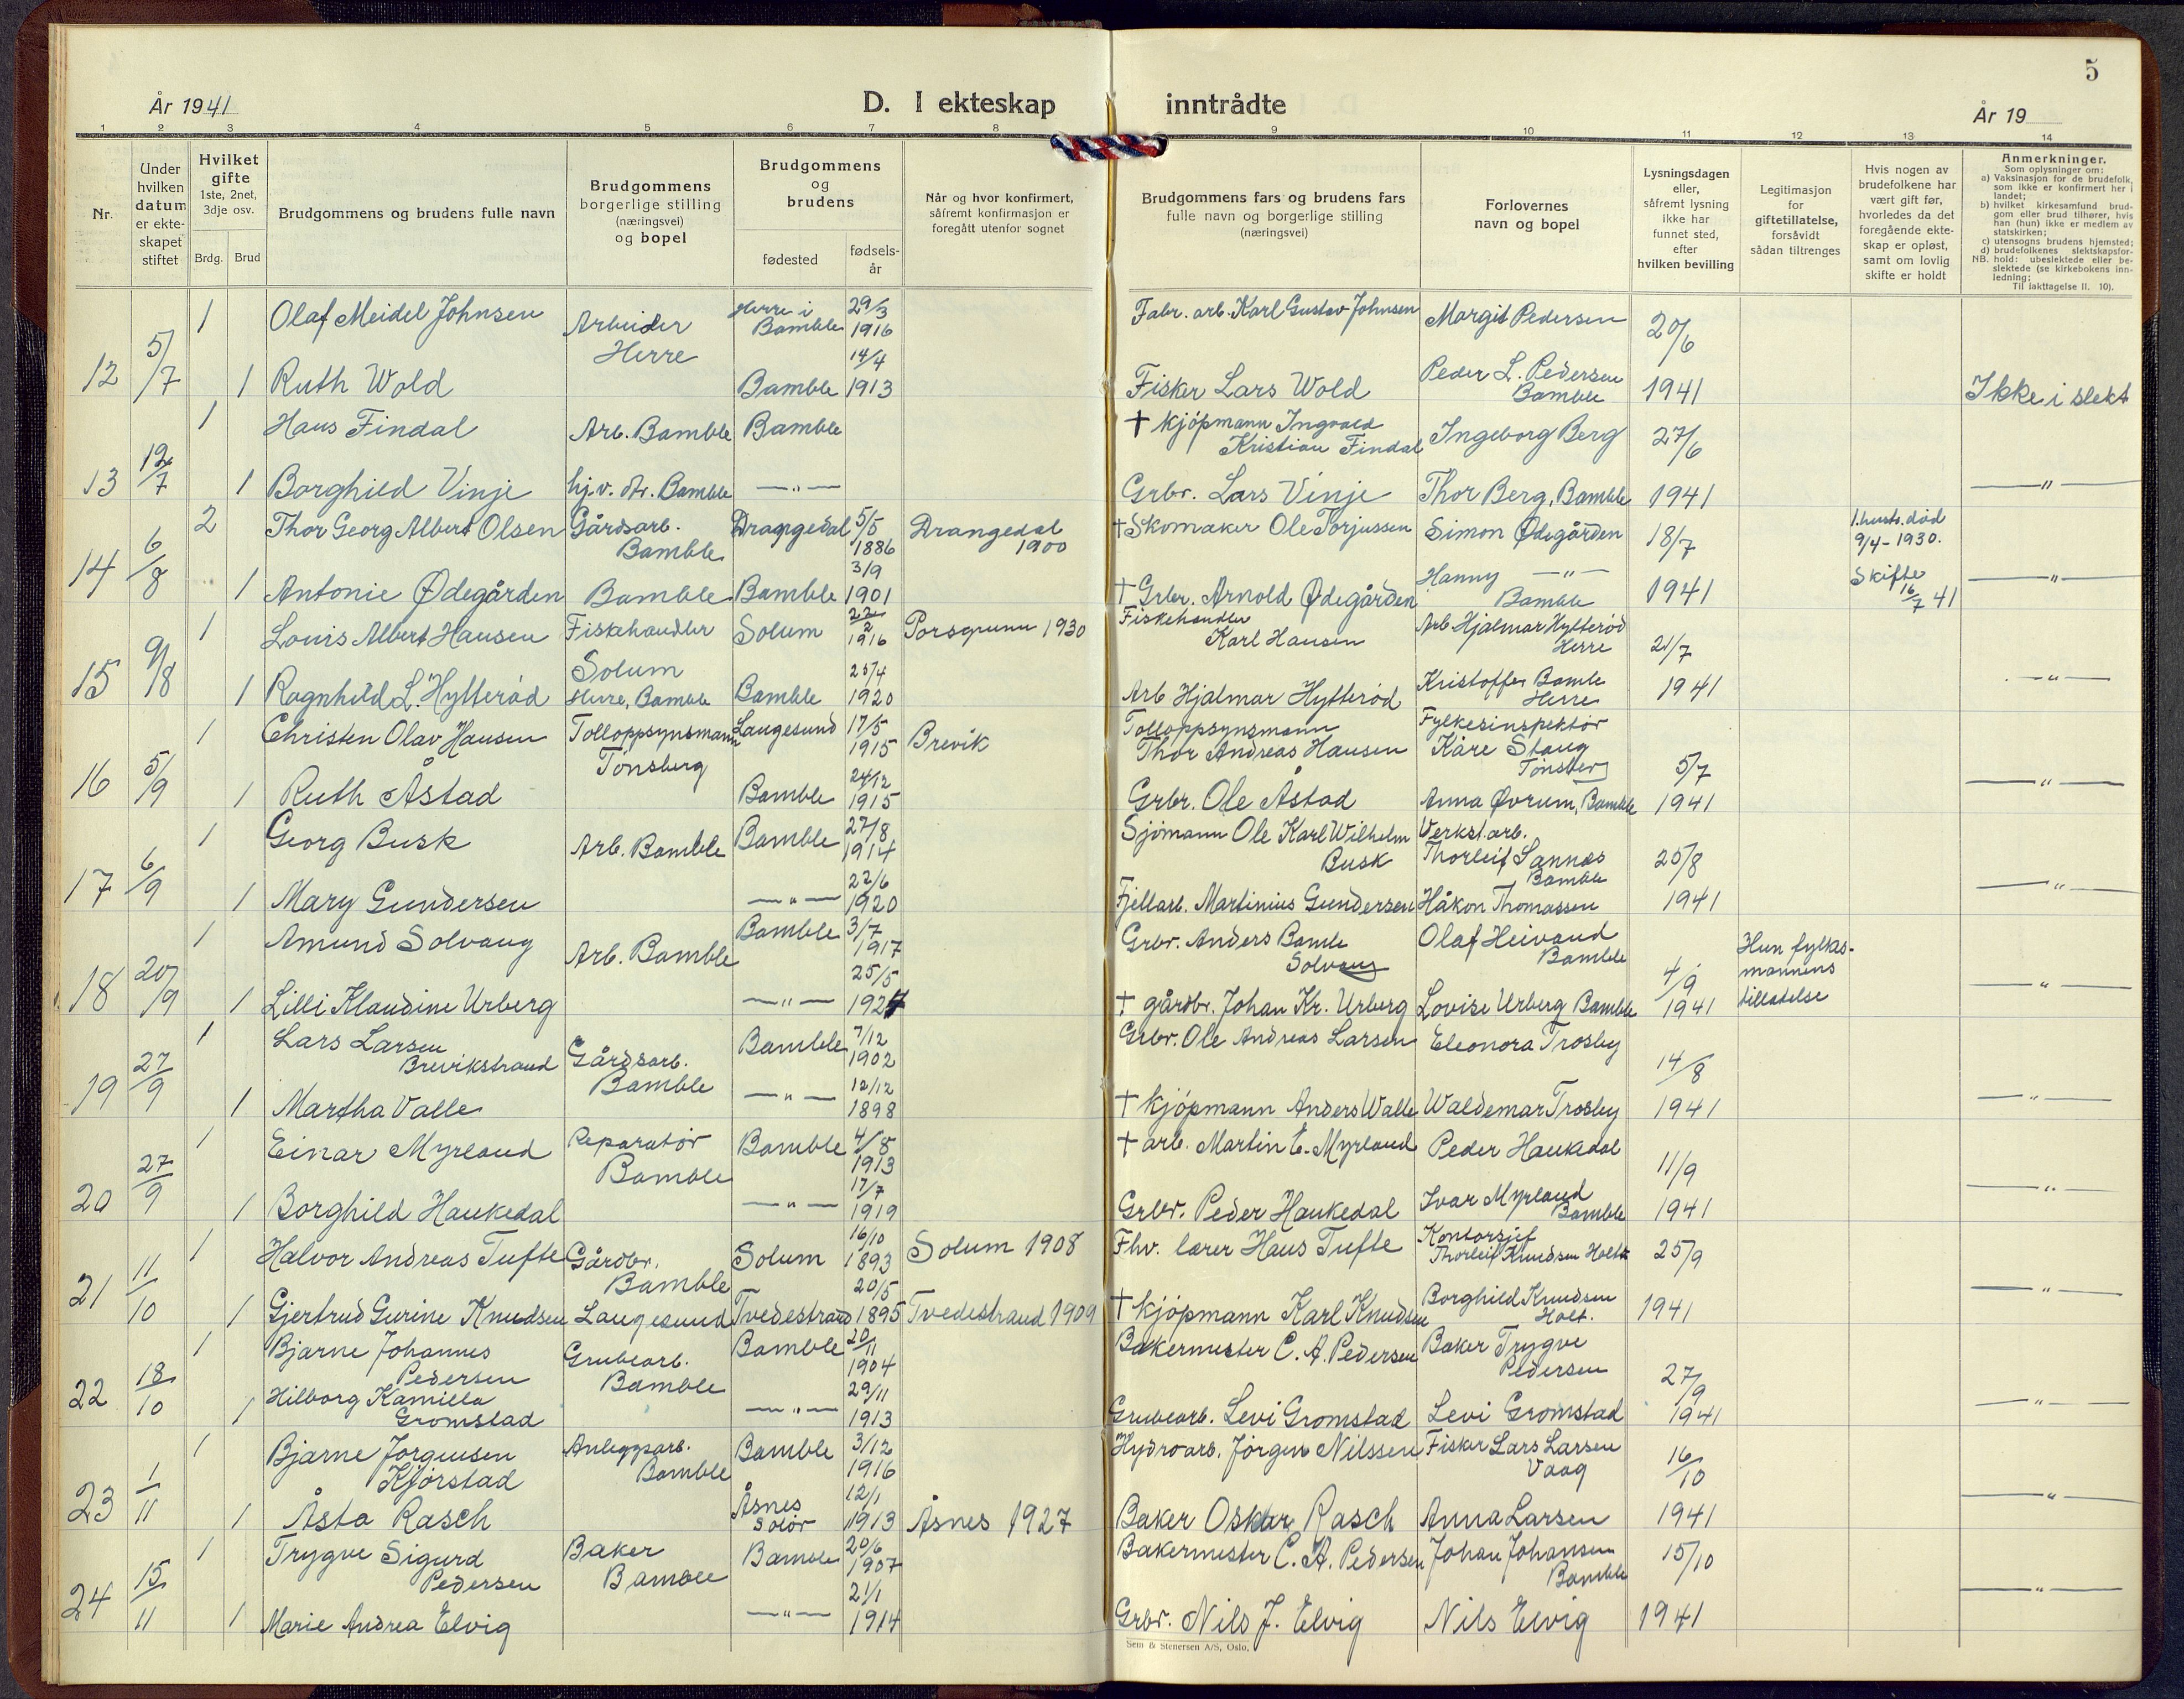 5
År 1941
D. I ekteskap inntrådte
År 19
1 2 3 4 5 6 7 8 9 10 11 12 13 14
Nr.
Under hvilken datum er ekte-skapet stiftet
Hvilket gifte 1ste, 2net, 3dje osv.
Brdg. Brud
Brudgommens og brudens fulle navn
Brudgommens borgerlige stilling (næringsvei) og bopel
Brudgommens og brudens
fødested fødsels-år
Når og hvor konfirmert, såfremt konfirmasjon er foregått utenfor sognet
Brudgommens fars og brudens fars fulle navn og borgerlige stilling (næringsvei)
Forlovernes navn og bopel
Lysningsdagen eller, såfremt lysning ikke har funnet sted, efter hvilken bevilling
Legitimasjon for giftetillatelse, forsåvidt sådan tiltrenges
Hvis nogen av brudefolkene har vært gift før, hvorledes da det foregående ekte-skap er opløst, samt om lovlig skifte er holdt
Anmerkninger.
Som oplysninger om:
a) Vaksinasjon for de brudefolk, som ikke er konfirmert her i landet;
b) hvilket kirkesamfund brud-gom eller brud tilhører, hvis han (hun) ikke er medlem av statskirken;
c) utensogns brudens hjemsted;
d) brudefolkenes slektskapsfor-hold: ubeslektede eller be-slektede (se kirkebokens inn-ledning;
NB. Til iakttagelse II. 10).
12 5/7 1 Olaf Meidel Johnsen Arbeider Herre Herre i Bamble 29/3 1916 Fabr. arb. Karl Gustav Johnsen Margit Pedersen 20/6
1 Ruth Wold Bamble 14/4 1913 Fisker Lars Wold Peder L. Pedersen Bamble 1941 Ikke i slekt
13 12/7 1 Hans Findal Arb. Bamble Bamble † Kjöpmann Ingvald Kristian Findal Ingeborg Berg 27/6
1 Borghild Vinje hj.v. dtr. Bamble —"— Grbr. Lars Vinje Thor Berg, Bamble 1941 —"—
14 6/8 2 Thor Georg Albert Olsen Gårdsarb. Bamble Drangedal 5/5 1886 Drangedal 1900 † Skomaker Ole Torjussen Simon Ødegården 18/7 1. hustr. död 9/4-1930.
1 Antonie Ødegården Bamble Bamble 3/9 1901 † Grbr. Arnold Ødegården Hanny —"— Bamble 1941 Skifte 16/7 41 —"—
15 9/8 1 Louis Albert Hansen Fiskehandler Solum Solum 22/2 1916 Porsgrunn 1930 Fiskehandler Karl Hansen Arb Hjalmar Hytteröd Herre 21/7
1 Ragnhild L. Hytteröd Herre, Bamble Bamble 25/4 1920 Arb Hjalmar Hytteröd Kristoffer Bamle Herre 1941 —"—
16 5/9 1 Christen Olav Hansen Tolloppsynsmann Tönsberg Langesund 17/5 1915 Brevik Tolloppsynsmann Thor Andreas Hansen Fylkesinspektör Kåre Stang Tönsberg 5/7
1 Ruth Åstad Bamble 24/12 1915 Grbr. Ole Åstad Anna Øvrum, Bamble 1941 —"—
17 6/9 1 Georg Busk Arb. Bamble Bamble 27/8 1914 Sjömann Ole Karl Wilhelm Busk Verkst.arb. Thorleif Sannes Bamble 25/8
1 Mary Gundersen —"— 22/6 1920 Fjellarb. Martinius Gundersen Håkon Thomassen 1941 —"—
18 20/9 1 Amund Solvang Arb. Bamble Bamble 3/7 1917 Grbr. Anders Bamle Solvang Olaf Heivand Bamble 4/9 Hun fylkes-mannens
1 Lilli Klaudine Urberg —"— 25/5 1924 † gårdbr. Johan Kr. Urberg Lovise Urberg Bamble 1941 tillatelse —"—
19 27/9 1 Lars Larsen Brevikstrand Gårdsarb. Bamble Bamble 7/12 1902 Grbr. Ole Andreas Larsen Eleonora Trosby 14/8
1 Martha Valle —"— 12/12 1898 † Kjöpmann Anders Walle Waldemar Trosby 1941 —"—
20 27/9 1 Einar Myrland Reparatör Bamble Bamble 4/8 1913 † arb. Martin E. Myrland Peder Haukedal 11/9
1 Borghild Haukedal —"— 17/7 1919 Grbr. Peder Haukedal Ivar Myrland Bamble 1941 —"—
21 11/10 1 Halvor Andreas Tufte Gårdbr. Bamble Solum 16/10 1893 Solum 1908 Fhv. lærer Hans Tufte Kontorsjef Thorleif Knudsen Holt 25/9
1 Gjertrud Gurine Knudsen Langesund Tvedestrand 20/5 1895 Tvedestrand 1909 † Kjöpmann Karl Knudsen Borghild Knudsen Holt. 1941 —"—
22 18/10 1 Bjarne Johannes Pedersen Grubearb. Bamble Bamble 20/11 1904 Bakermester C. A. Pedersen Baker Trygve Pedersen 27/9
1 Hilborg Kamilla Gromstad —"— 29/11 1913 Grubearb. Levi Gromstad Levi Gromstad 1941 —"—
23 1/11 1 Bjarne Jörgensen Kjörstad Anleggsarb. Bamble Bamble 3/12 1916 Hydroarb. Jörgen Nilssen Fisker Lars Larsen Vaag 16/10
1 Åsta Rasch Åsnes Solör 12/1 1913 Åsnes 1927 Baker Oskar Rasch Anna Larsen 1941 —"—
24 15/11 1 Trygve Sigurd Pedersen Baker Bamble Bamble 20/6 1907 Bakermester C. A. Pedersen Johan Johansen Bamble 15/10
1 Marie Andrea Elvig —"— 21/1 1914 Grbr. Nils J. Elvig Nils Elvig 1941 —"—
Sem & Stenersen A/S, Oslo.